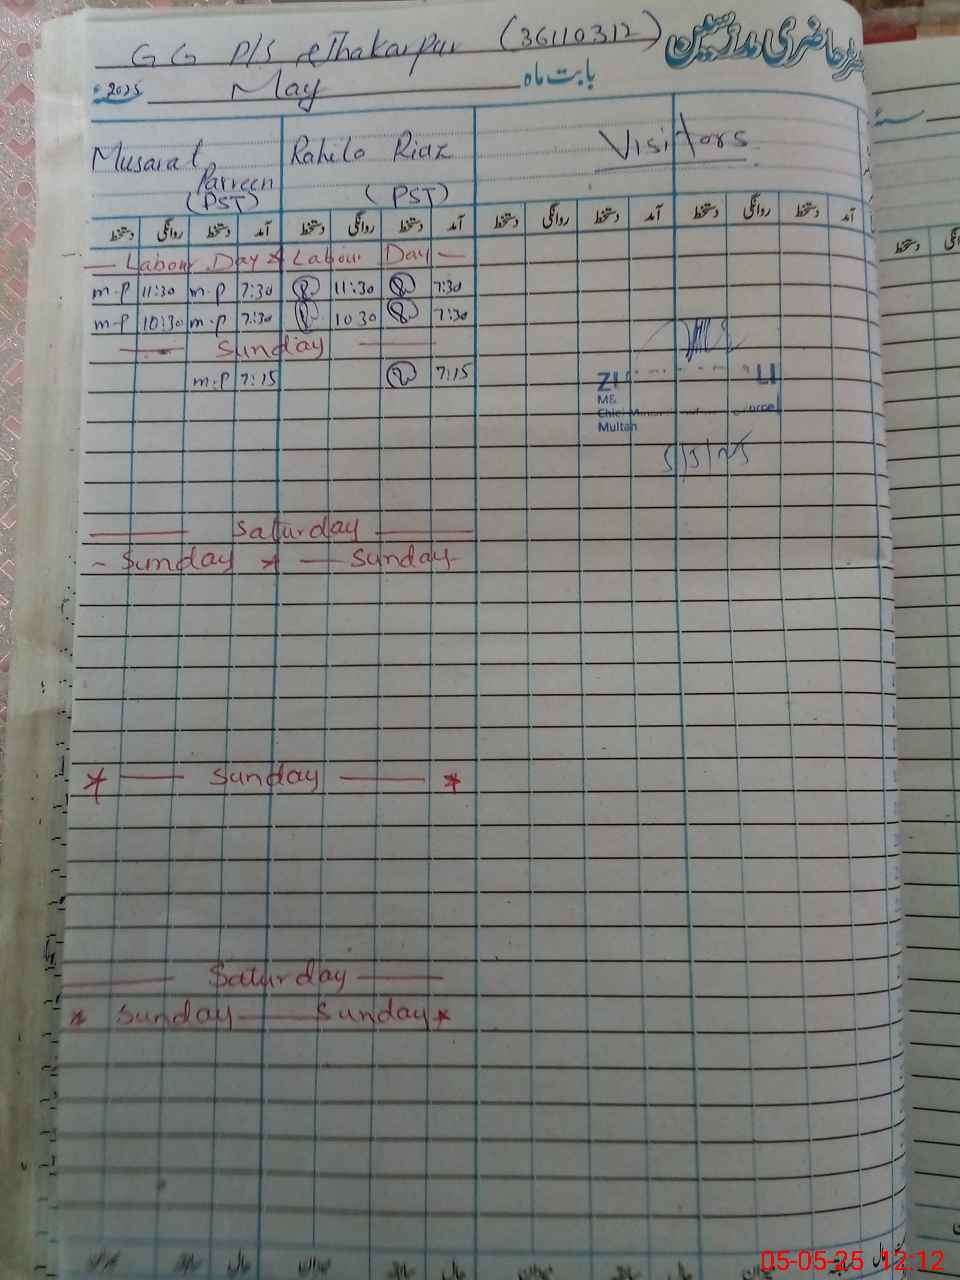 GG P/S Thakarpur (36110312) رجسٹر حاضری مدرسین
2025ء May بابت ماہ
Musarat Parveen (PST) Rahila Riaz (PST) Visitors
دستخط روانگی دستخط آمد دستخط روانگی دستخط آمد دستخط روانگی دستخط آمد دستخط روانگی دستخط آمد
— Labour Day * Labour Day —
m.p 11:30 m.p 7:30 11:30 7:30
m.p 10:30 m.p 7:30 10 30 7:30
— Sunday —
m.p 7:15 7:15
ZU LI
Multan
5/5/25
— Saturday —
- Sunday * — Sunday -
* — Sunday — *
— Saturday —
* Sunday — Sunday *
05-05-25 12:12